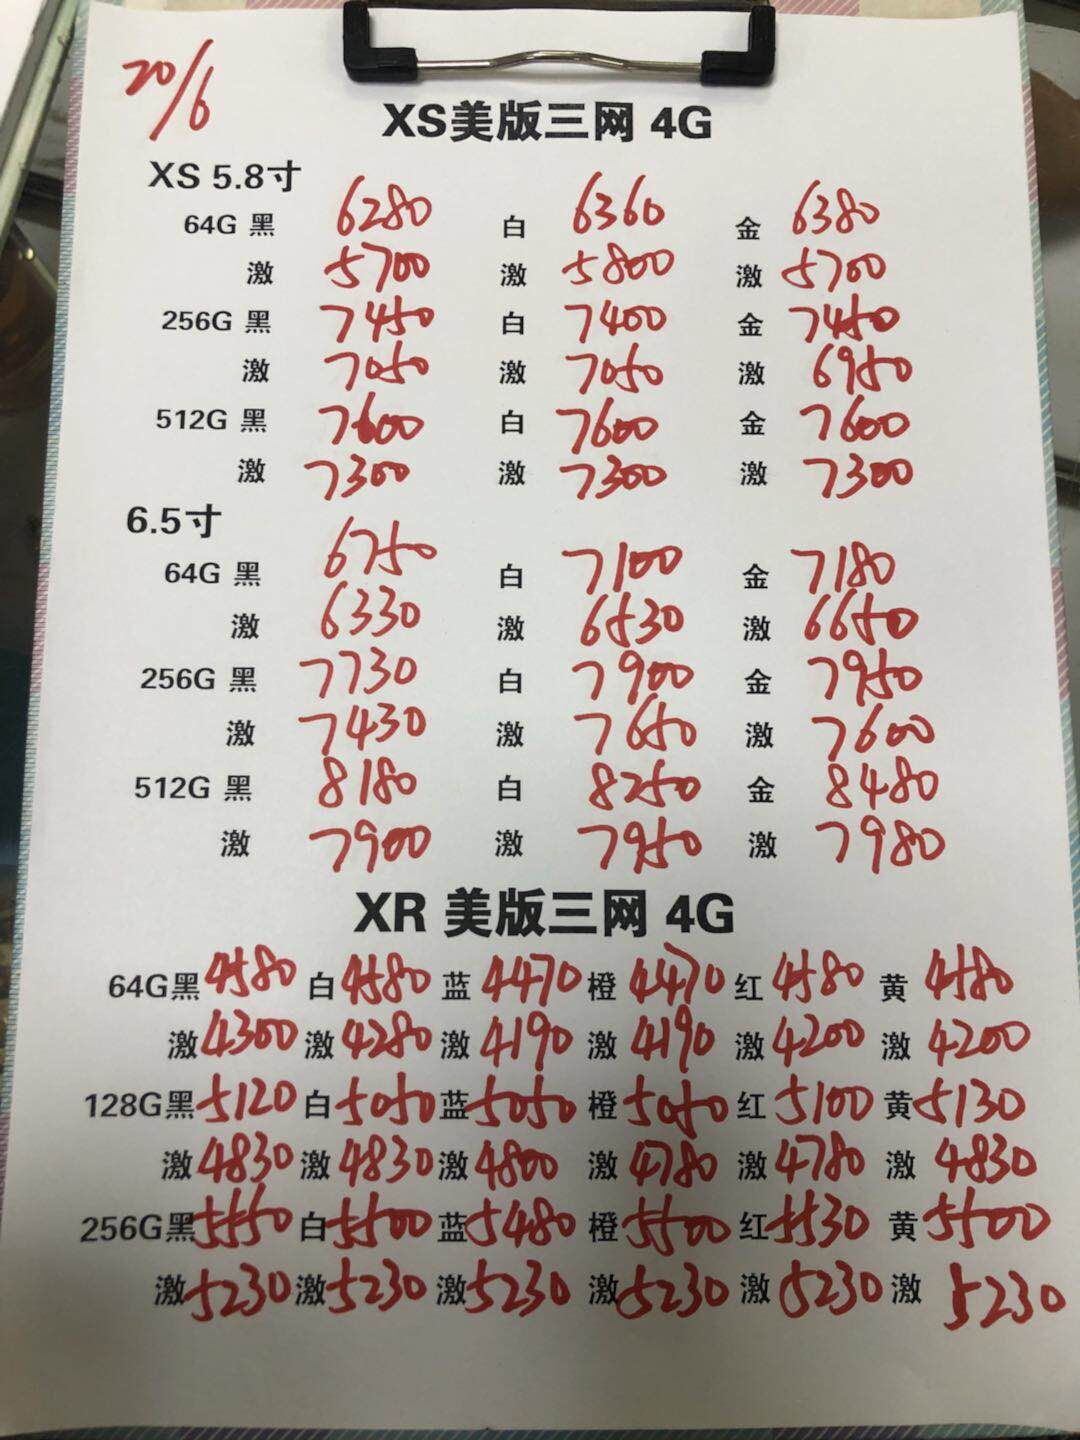 20/6
XS美版三网 4G
XS 5.8寸
64G 黑 6280 白 6360 金 6380
激 5700 激 5800 激 5700
256G 黑 7450 白 7400 金 7450
激 7050 激 7050 激 6950
512G 黑 7600 白 7600 金 7600
激 7300 激 7300 激 7300
6.5寸
64G 黑 6750 白 7100 金 7180
激 6330 激 6530 激 6650
256G 黑 7730 白 7900 金 7950
激 7430 激 7650 激 7600
512G 黑 8180 白 8250 金 8480
激 7900 激 7950 激 7980
XR 美版三网 4G
64G黑 4580 白 4580 蓝 4470 橙 4470 红 4580 黄 4580
激 4300 激 4280 激 4190 激 4190 激 4200 激 4200
128G黑 5120 白 5050 蓝 5050 橙 5050 红 5100 黄 5130
激 4830 激 4830 激 4800 激 4780 激 4780 激 4830
256G黑 5550 白 5500 蓝 5480 橙 5500 红 5530 黄 5500
激 5230 激 5230 激 5230 激 5230 激 5230 激 5230